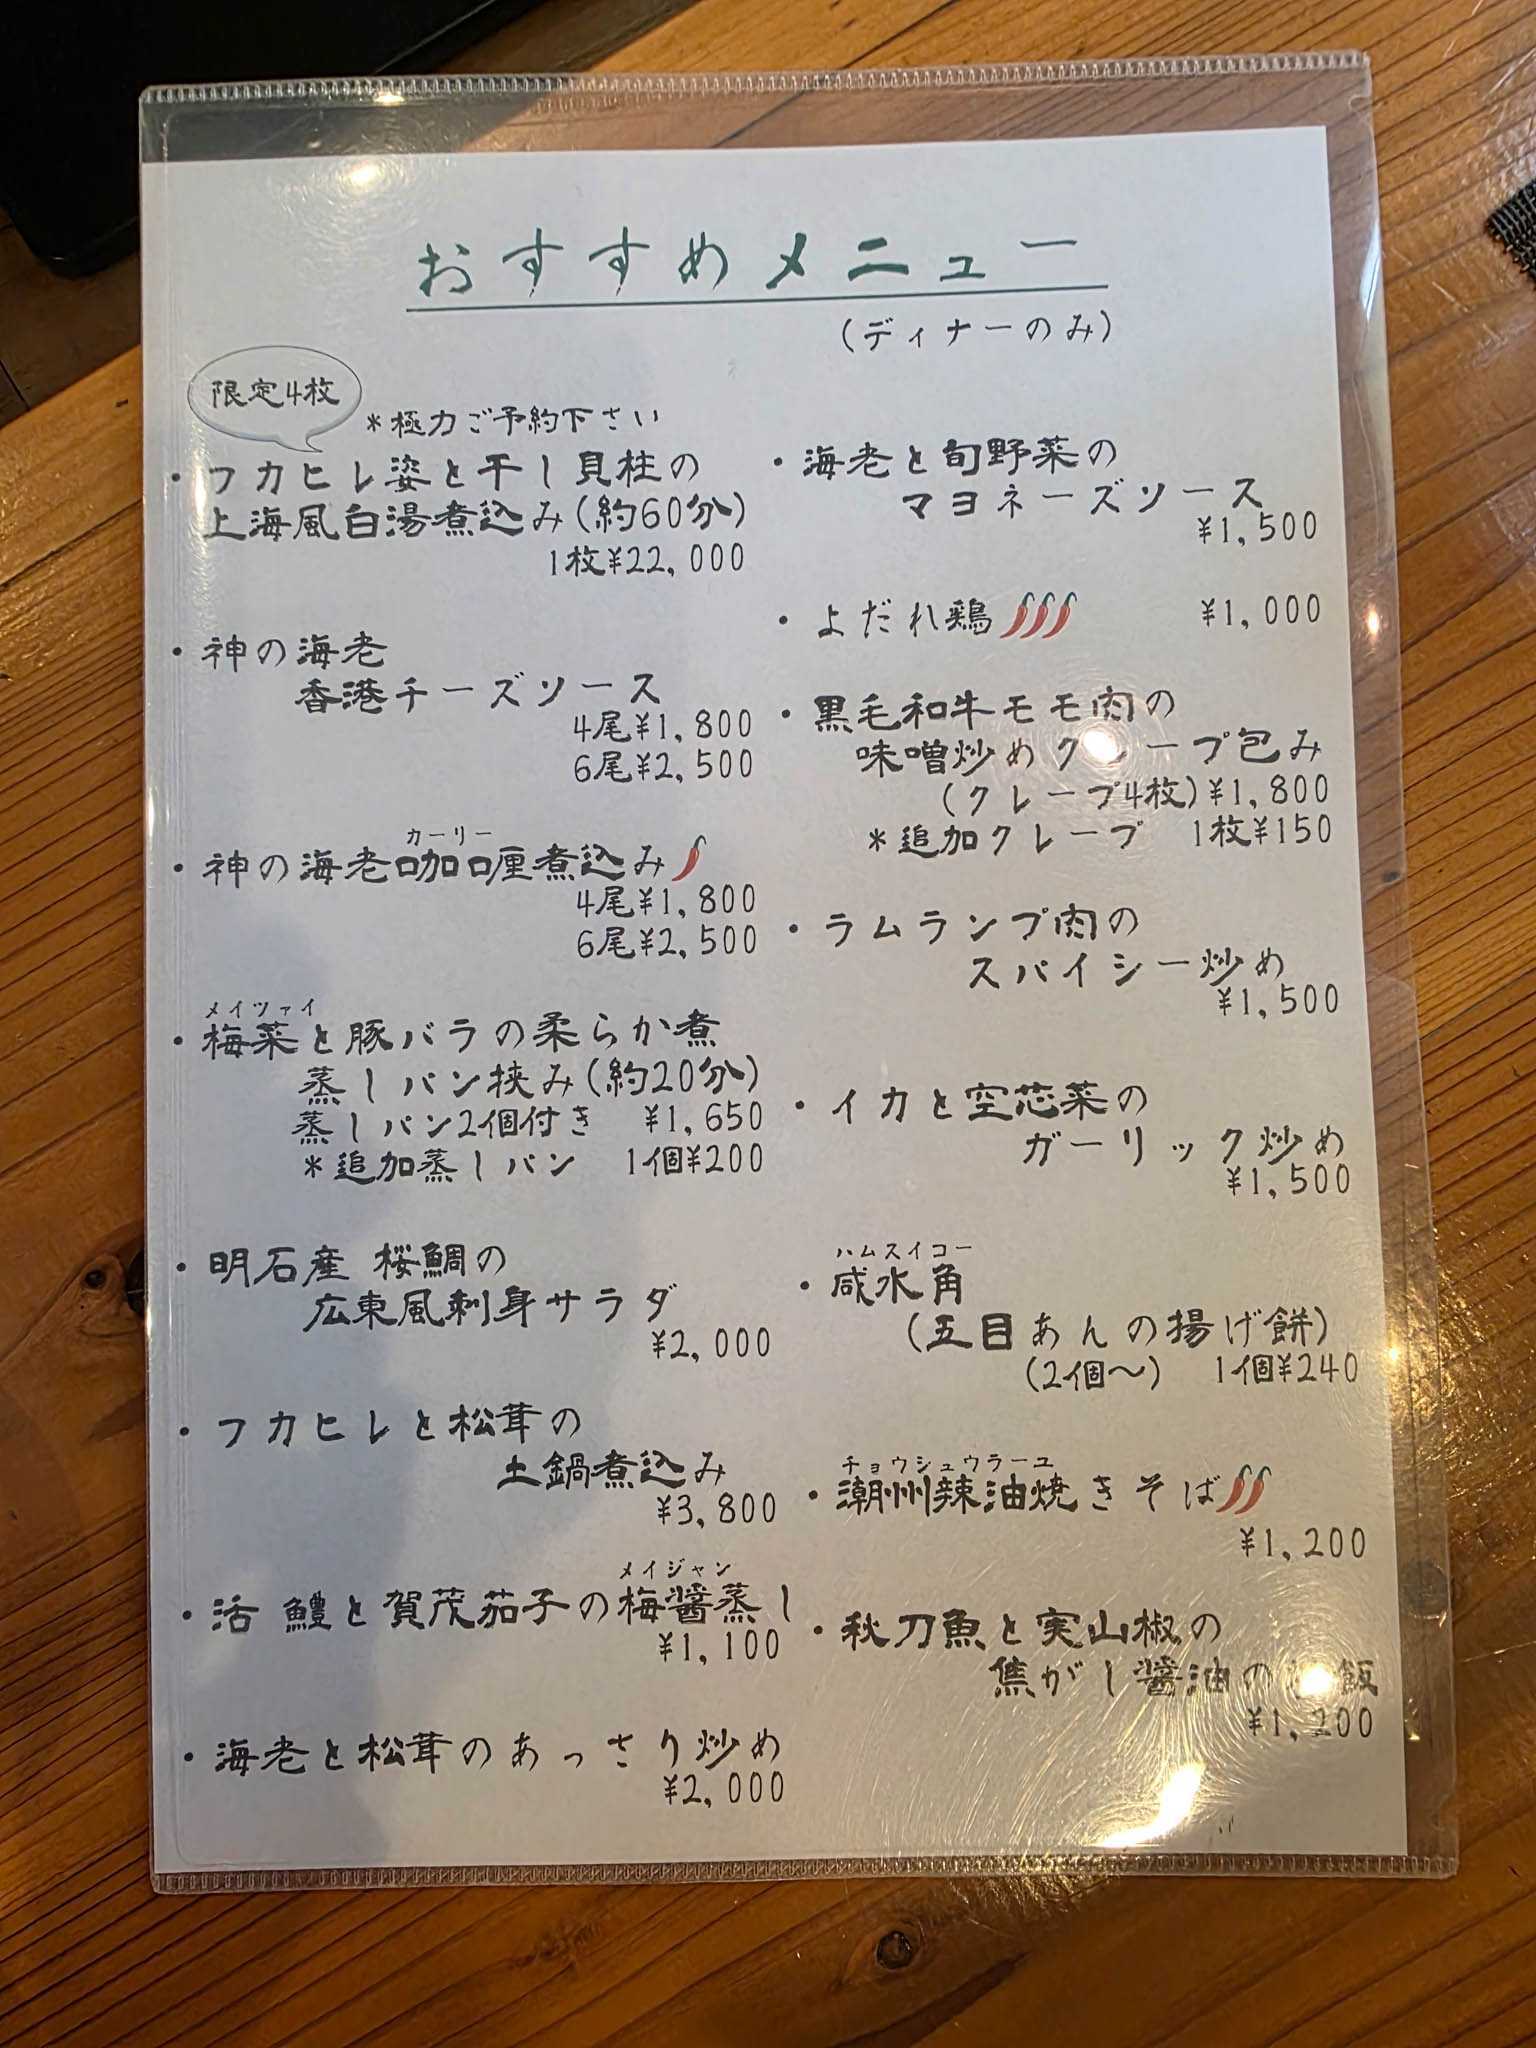 おすすめメニュー
(ディナーのみ)
限定4枚
*極力ご予約下さい
・フカヒレ姿と干し貝柱の
上海風白湯煮込み(約60分)
1枚¥22,000
・神の海老
香港チーズソース
4尾¥1,800
6尾¥2,500
カーリー
・神の海老咖喱煮込み
4尾¥1,800
6尾¥2,500
メイツァイ
・梅菜と豚バラの柔らか煮
蒸しパン挟み(約20分)
蒸しパン2個付き ¥1,650
*追加蒸しパン 1個¥200
・明石産 桜鯛の
広東風刺身サラダ
¥2,000
・フカヒレと松茸の
土鍋煮込み
¥3,800
メイジャン
・活 鱧と賀茂茄子の梅醤蒸し
¥1,100
・海老と松茸のあっさり炒め
¥2,000
・海老と旬野菜の
マヨネーズソース
¥1,500
・よだれ鶏 ¥1,000
・黒毛和牛モモ肉の
味噌炒めクレープ包み
(クレープ4枚)¥1,800
*追加クレープ 1枚¥150
・ラムランプ肉の
スパイシー炒め
¥1,500
・イカと空芯菜の
ガーリック炒め
¥1,500
ハムスイコー
・咸水角
(五目あんの揚げ餅)
(2個〜) 1個¥240
チョウシュウラーユ
・潮州辣油焼きそば
¥1,200
・秋刀魚と実山椒の
焦がし醤油の飯
¥1,200